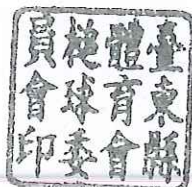 臺東縣
體育會
槌球委
員會印